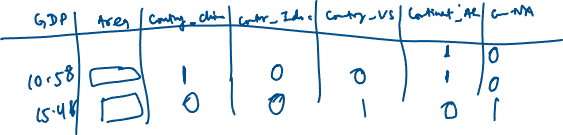 GDP Area Country_China Contr_Indi Country_US Continent_As C_NA
1 0
10.58 1 0 0 1 0
15.48 0 0 1 0 1